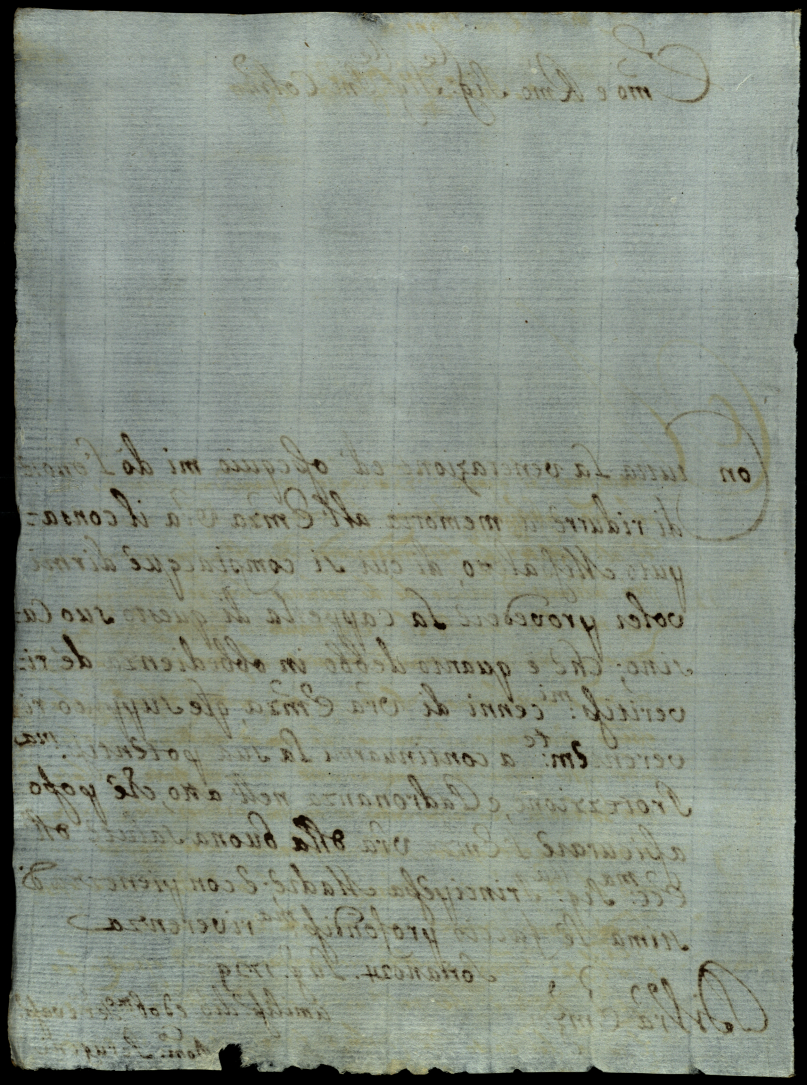 Em̃o e Rmo Sig.r Sig.r
Con tutta la venerazione ed' ossequio mi dò l'onore
di ridurre a memoria all' Emza Vrã il consa-
puto Messal-, di cui si compiacque dirmi
voler provedere la cappella di questo suo Ca-
sino; che è quanto debbo in obbedienza de ri-
veritiss.mi cenni di Vrã Emza, q.le supplico ri-
verentem.te a continuarmi la sua potentiss.ma
Protezione, e Padronanza nell' atto, che posso
assicurare l'Emza Vrã della buona salute dell'
Ecc.ma Sig.ra Principessa Madre: e con pienezza
le faccio profondiss.ma riverenza
24. 1729
Di Vrã Emza
Umiliss.mo